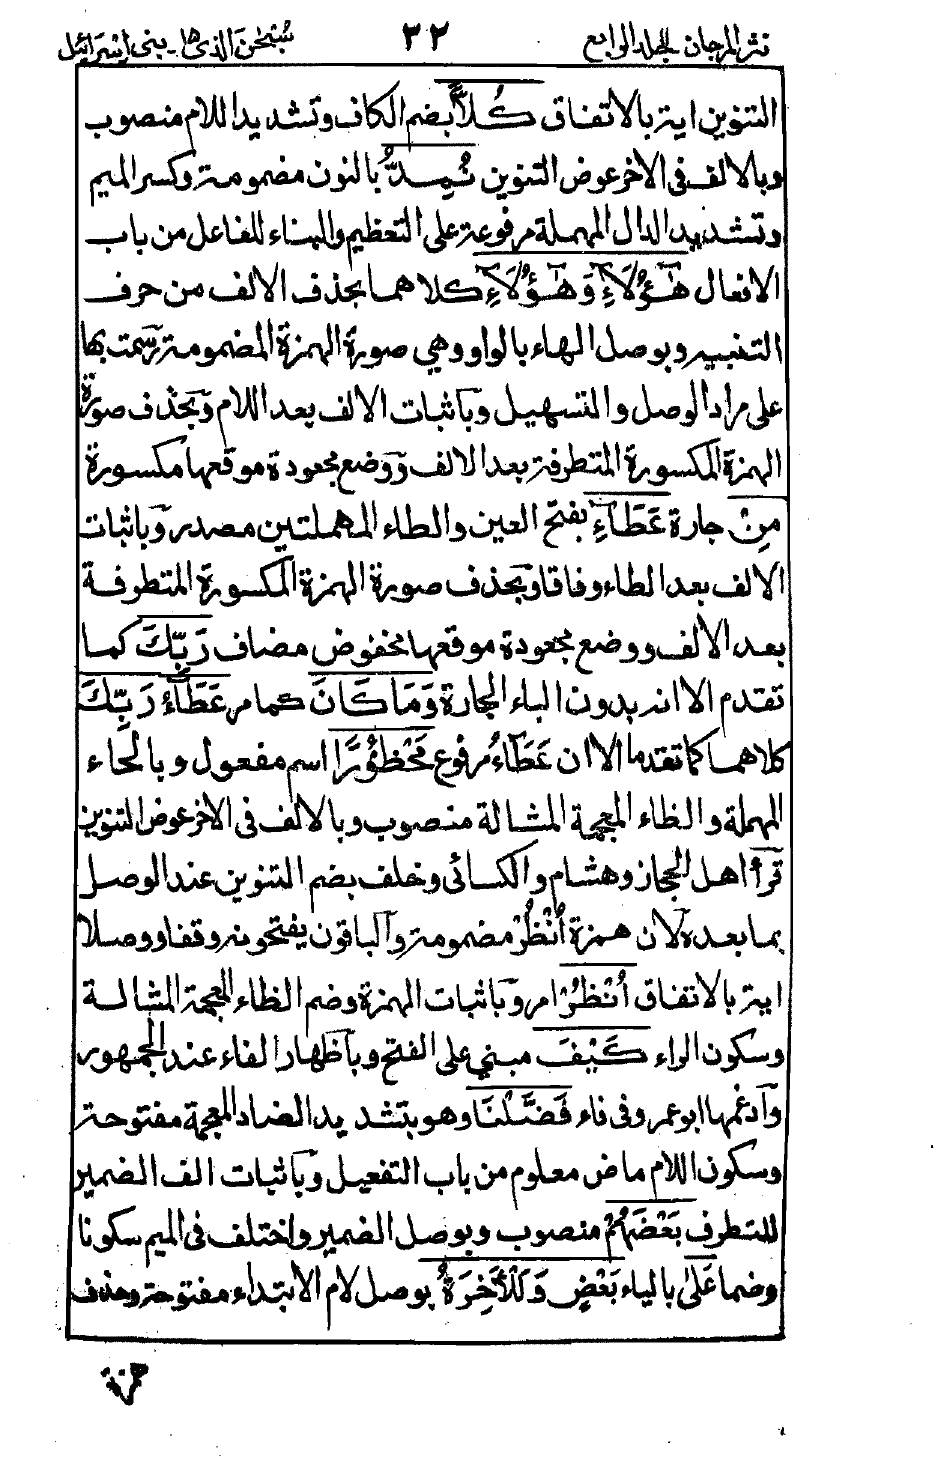 نثر المرجان الجلد الرابع ٣٢ سبحن الذى ١٥ - بنى اسرائيل
التنوين ايتر بالاتفاق كُلًّا بضم الكاف وتشديد اللام منصوب
وبالالف فى الاخر عوض التنوين نُمِدُّ بالنون مضمومة وكسر الميم
وتشديد الدال المهملة مرفوعة على التعظيم والبناء للفاعل من باب
الافعال هَـٰٓؤُلَآءِ وَهَـٰٓؤُلَآءِ كلاهما بحذف الالف من حرف
التنبيه وبوصل الهاء بالواو وهي صورة الهمزة المضمومة رسمت بها
على مراد الوصل والتسهيل وباثبات الالف بعد اللام وبحذف صورة
الهمزة المكسورة المتطرفة بعد الالف ووضع مجعودة موقعها مكسورة
مِنْ جارة عَطَآءِ بفتح العين والطاء المهملتين مصدر وباثبات
الالف بعد الطاء وفاقا وبحذف صورة الهمزة المكسورة المتطرفة
بعد الالف ووضع مجعودة موقعها مخفوض مضاف رَبِّكَ كما
تقدم الا انه بدون الباء الجارة وَمَا كَانَ كما مر عَطَآءُ رَبِّكَ
كلاهما كما تقدما الا ان عَطَآءُ مرفوع مَحْظُوْرًا اسم مفعول وبالحاء
المهملة والظاء المعجمة المشالة منصوب وبالالف فى الاخر عوض التنوين
قرأ اهل الحجاز وهشام والكسائى وخلف بضم التنوين عند الوصل
بما بعده لان همزة أُنْظُرْ مضمومة والباقون يفتحونه وقفا ووصلا
ايتر بالاتفاق أُنْظُرْ امر وباثبات الهمزة وضم الظاء المعجمة المشالة
وسكون الراء كَيْفَ مبني على الفتح وباظهار الفاء عند الجمهور
وادغمها ابو عمرو فى فاء فَضَّلْنَا وهو بتشديد الضاد المعجمة مفتوحة
وسكون اللام ماض معلوم من باب التفعيل وباثبات الف الضمير
للتطرف بَعْضَهُمْ منصوب وبوصل الضمير واختلف فى الميم سكونا
وضما عَلَىٰ بالياء بَعْضٍ وَلَلْأَخِرَةُ بوصل لام الابتداء مفتوحة وحذف
همزة